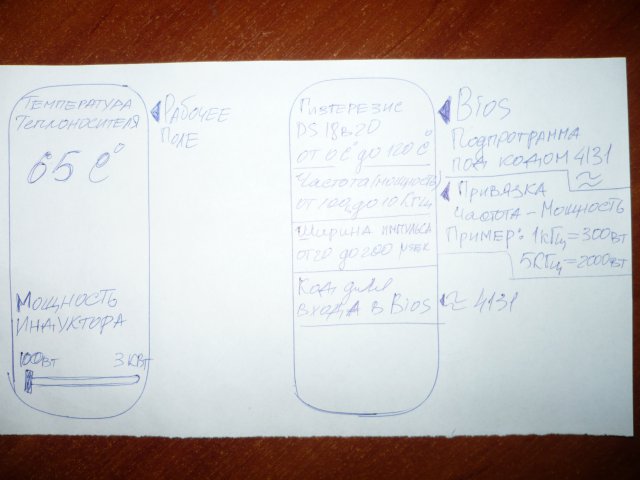 Температура
Теплоносителя
65 C°
Мощность
Индуктора
100Вт 3 кВт
Рабочее
поле
Гистерезис
DS 18B20
от 0 C° до 120 C°
Частота/мощность
от 100 до 10 кГц
Ширина импульса
от 20 до 200 μsek
Код для
входа в Bios
Bios
Подпрограмма
под кодом 4131
Привязка
Частота - Мощность
Пример: 1кГц=300вт
5кГц=2000вт
≈ 4131